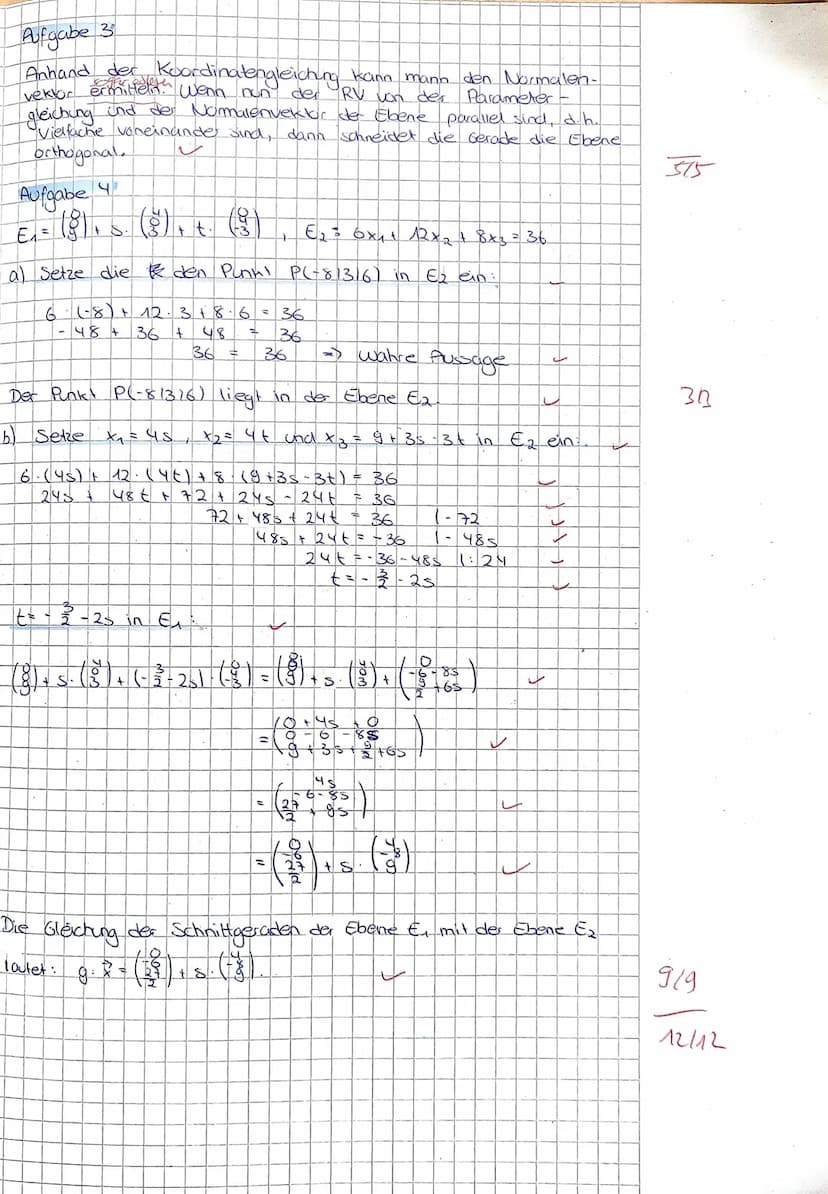 Aufgabe 3
Anhand der Koordinatengleichung kann mann den Normalen-
vektor ermitteln. Wenn nun der RV von der Parameter-
gleichung und der Normalenvektor der Ebene parallel sind, d.h.
Vielfache voneinander sind, dann schneidet die Gerade die Ebene
orthogonal.
5/5
Aufgabe 4
E₁ = (0 0 9) + s · (4 0 3) + t · (0 4 -3) , E₂ = 6x₁ + 12x₂ + 8x₃ = 36
a) Setze die den Punkt P(-8|3|6) in E₂ ein:
6 · (-8) + 12 · 3 + 8 · 6 = 36
-48 + 36 + 48 = 36
36 = 36 => Wahre Aussage
Der Punkt P(-8|3|6) liegt in der Ebene E₂.
3/3
b) Setze x₁ = 4s, x₂ = 4t und x₃ = 9 + 3s - 3t in E₂ ein:
6 · (4s) + 12 · (4t) + 8 · (9+3s-3t) = 36
24s + 48t + 72 + 24s - 24t = 36
72 + 48s + 24t = 36 |-72
48s + 24t = -36 |-48s
24t = -36 - 48s |:24
t = -3/2 - 2s
t = -3/2 - 2s in E₁:
(0 0 9) + s · (4 0 3) + (-3/2 - 2s) · (0 4 -3) = (0 0 9) + s · (4 0 3) + (0 -6-8s 9/2+6s)
= (0+4s+0 0-6-8s 9+3s+9/2+6s)
= (4s -6-8s 27/2+9s)
= (0 -6 27/2) + s · (4 -8 9)
Die Gleichung der Schnittgeraden der Ebene E₁ mit der Ebene E₂
lautet: g: x⃗ = (0 -6 27/2) + s · (4 -8 9).
9/9
12/12